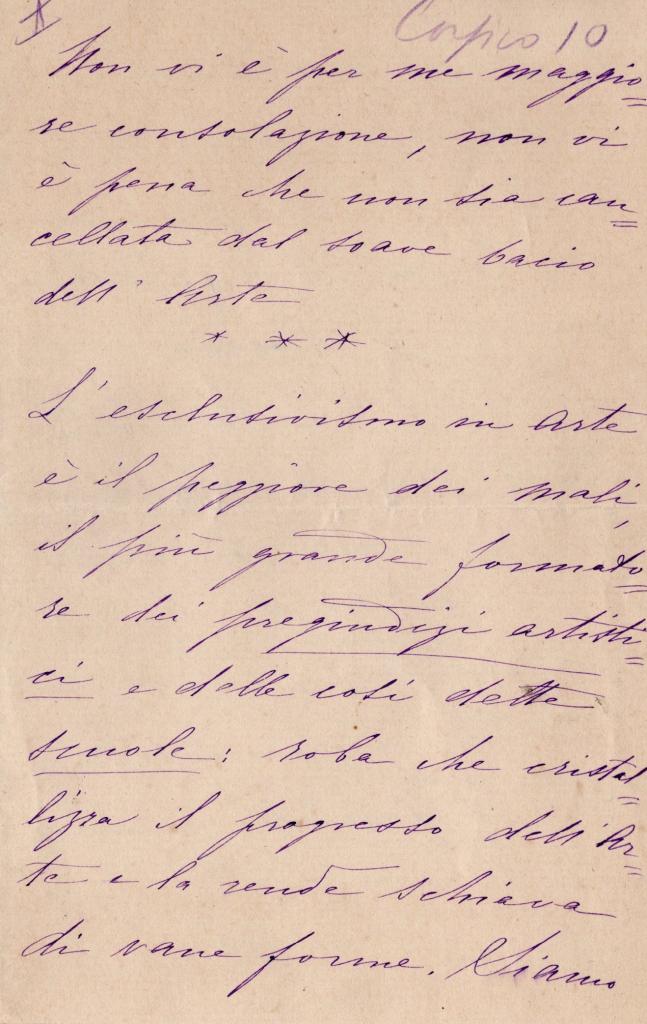 X
10
Non vi è per me maggio=
re consolazione, non vi
è pena che non sia can=
cellata dal soave bacio
dell' Arte
* * *
L'esclusivismo in arte
è il peggiore dei mali,
il più grande formato=
re dei pregiudizi artisti=
ci e delle così dette
scuole: roba che cristal=
lizza il progresso dell'Ar=
te e la rende schiava
di vane forme. Siamo